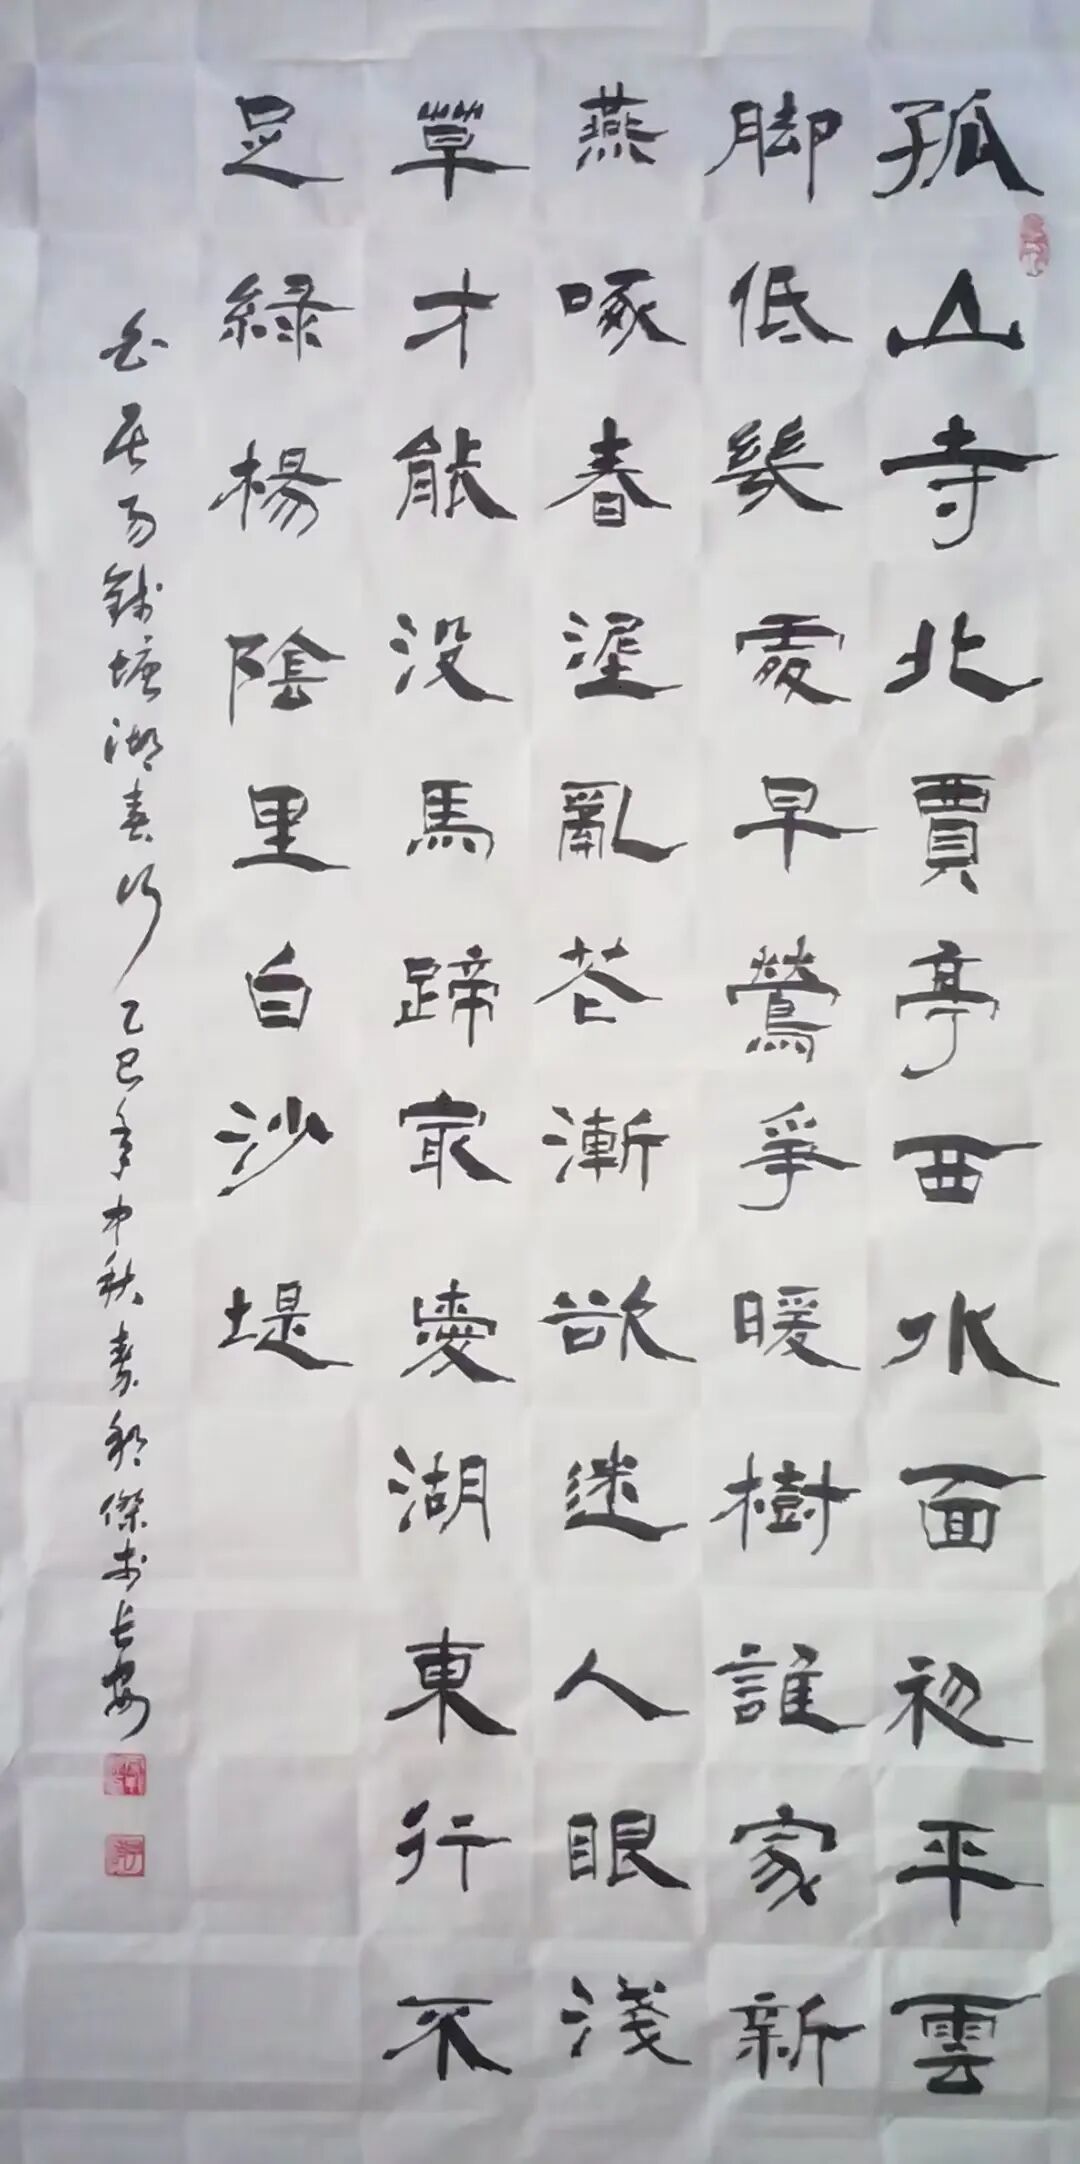 孤山寺北賈亭西水面初平雲
脚低幾處早鶯爭暖樹誰家新
燕啄春埿亂花漸欲迷人眼淺
草才能没馬蹄最愛湖東行不
足綠楊陰里白沙堤
白居易錢塘湖春行乙巳年中秋 傑於長安